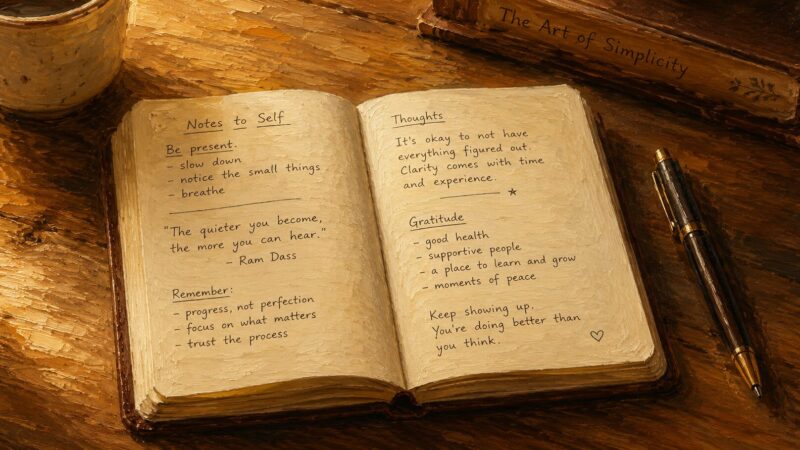 The Art of Simplicity
Notes to Self
Be present.
- slow down
- notice the small things
- breathe
"The quieter you become,
the more you can hear."
- Ram Dass
Remember:
- progress, not perfection
- focus on what matters
- trust the process
Thoughts
It's okay to not have
everything figured out.
Clarity comes with time
and experience.
Gratitude
- good health
- supportive people
- a place to learn and grow
- moments of peace
Keep showing up.
You're doing better than
you think.